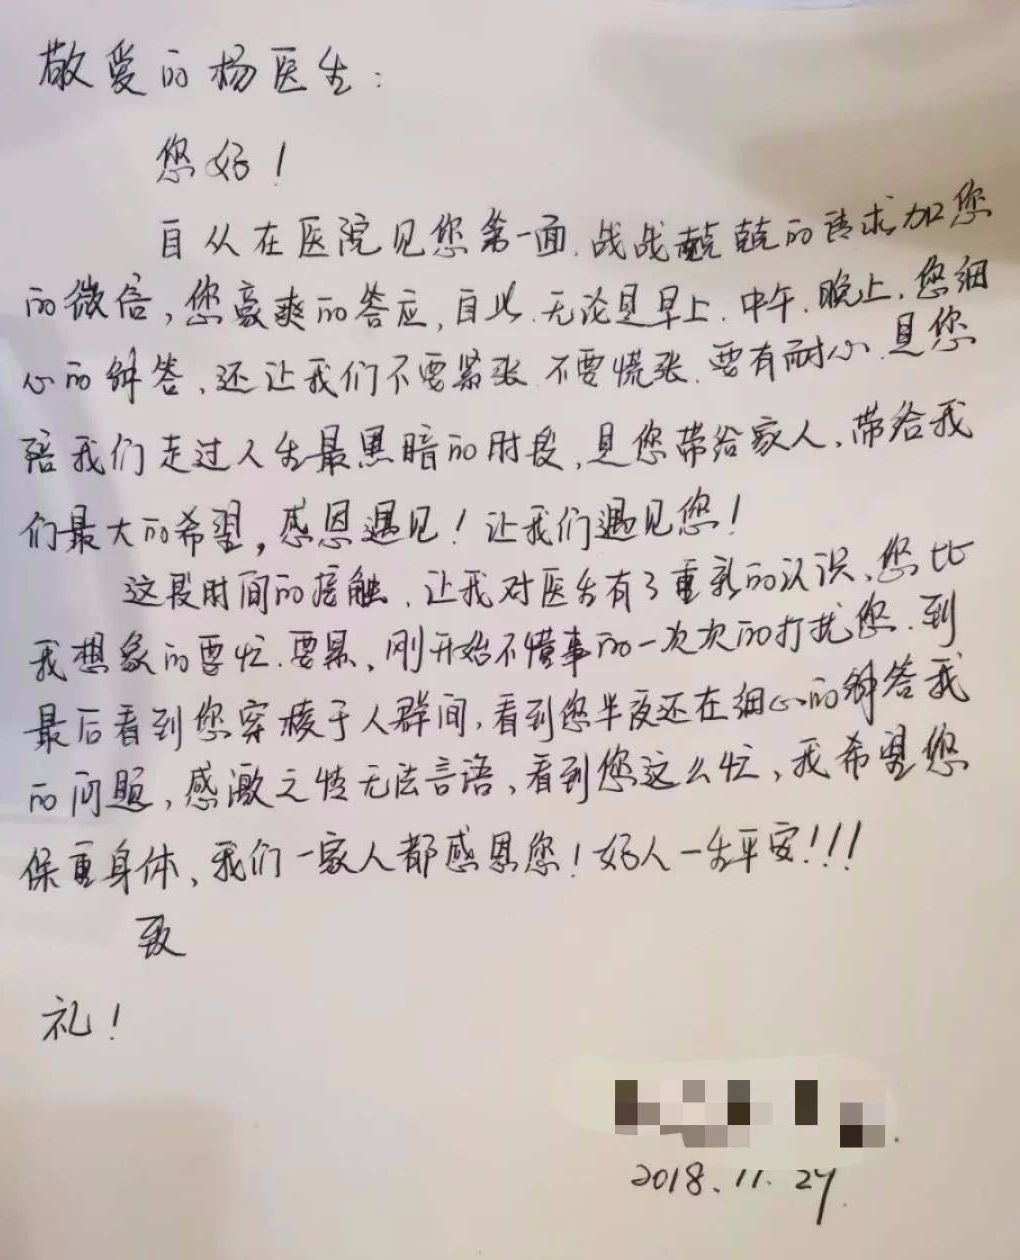 敬爱的杨医生：
您好！
自从在医院见您第一面，战战兢兢的请求加您
的微信，您豪爽的答应，自此，无论是早上，中午，晚上，您细
心的解答，还让我们不要紧张，不要慌张，要有耐心，是您
陪我们走过人生最黑暗的时段，是您带给家人，带给我
们最大的希望，感恩遇见！让我们遇见您！
这段时间的接触，让我对医生有了重新的认识，您比
我想象的要忙，要累，刚开始不懂事的一次次的打扰您，到
最后看到您穿梭于人群间，看到您半夜还在细心的解答我
的问题，感激之情无法言语，看到您这么忙，我希望您
保重身体，我们一家人都感恩您！好人一生平安！！！
致
礼！
2018.11.24